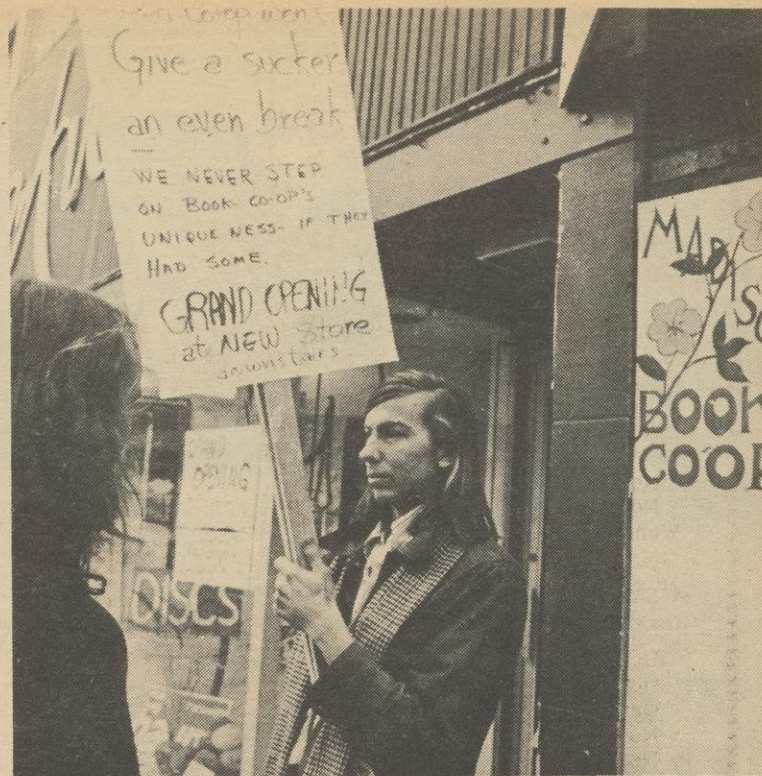 Co-op won't
Give a sucker
an even break
WE NEVER STEP
ON BOOK CO-OP'S
UNIQUENESS- IF THEY
HAD SOME.
GRAND OPENING
at NEW Store
downstairs
OPENING
DISCS
MADISO
BOOK
COOP